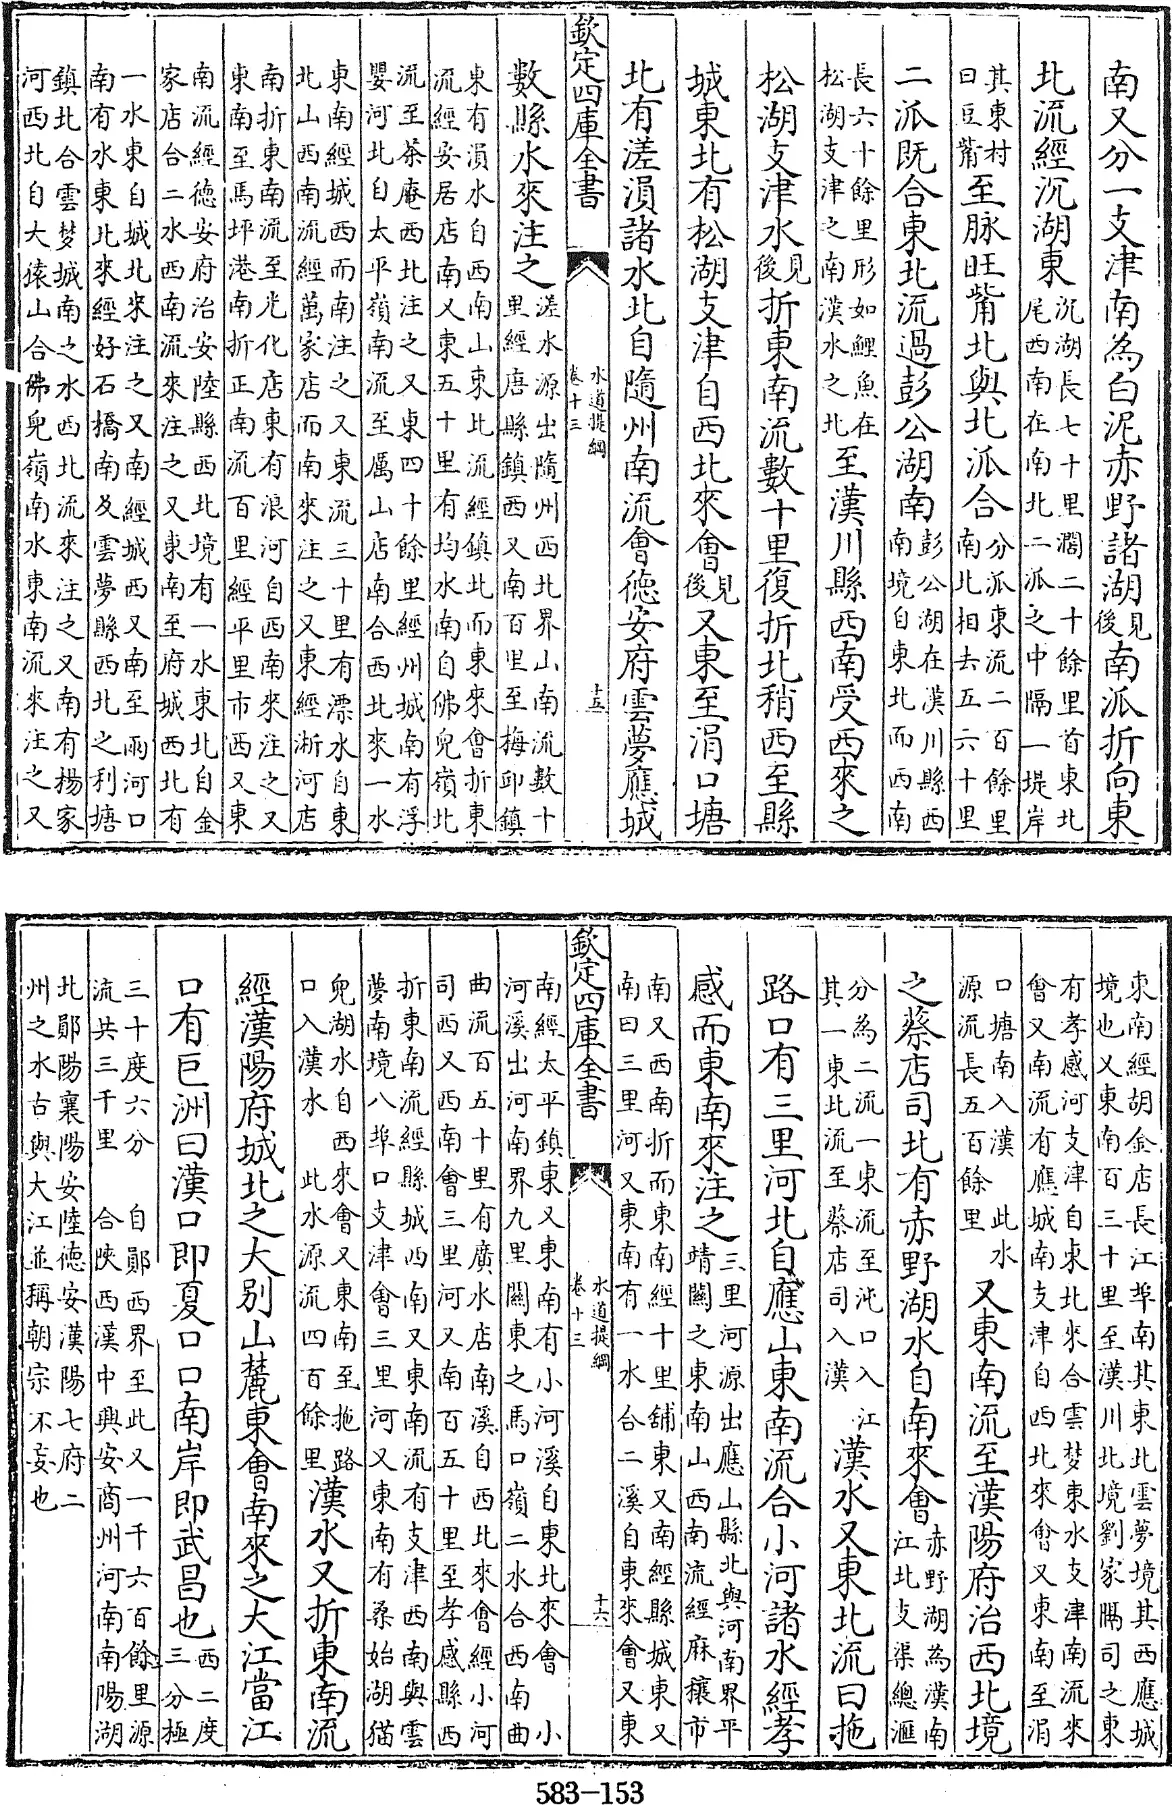 南又分一支津南為白泥赤野諸湖見後南派折向東
北流經沉湖東沉湖長七十里濶二十餘里首東北尾西南在南北二派之中隔一堤岸
其東村曰豆觜至脉旺觜北與北派合分派東流二百餘里南北相去五六十里
二派既合東北流過彭公湖南彭公湖在漢川縣西南境自東北而西南
長六十餘里形如鯉魚在松湖支津之南漢水之北至漢川縣西南受西來之
松湖支津水見後折東南流數十里復折北稍西至縣
城東北有松湖支津自西北來會見後又東至涓口塘
北有溠溳諸水北自隨州南流會德安府雲夢應城
欽定四庫全書 水道提綱卷十三 十五
數縣水來注之溠水源出隨州西北界山南流數十里經唐縣鎮西又南百里至梅邱鎮
東有溳水自西南山東北流經鎮北而東來會折東流經安居店南又東五十里有均水南自佛兒嶺北
流至茶庵西北注之又東四十餘里經州城南有浮嬰河北自太平嶺南流至厲山店南合西北來一水
東南經城西而南注之又東流三十里有漂水自東北山西南流經萬家店而南來注之又東經淅河店
南折東南流至光化店東有浪河自西南來注之又東南至馬坪港南折正南流百里經平里市西又東
南流經德安府治安陸縣西北境有一水東北自金家店合二水西南流來注之又東南至府城西北有
一水東自城北來注之又南經城西又南至兩河口南有水東北來經好石橋南及雲夢縣西北之利塘
鎮北合雲夢城南之水西北流來注之又南有楊家河西北自大猿山合佛兒嶺南水東南流來注之又
東南經胡金店長江埠南其東北雲夢境其西應城境也又東南百三十里至漢川北境劉家隔司之東
有孝感河支津自東北來合雲夢東水支津南流來會又南流有應城南支津自西北來會又東南至涓
口塘南入漢 此水源流長五百餘里又東南流至漢陽府治西北境
之蔡店司北有赤野湖水自南來會赤野湖為漢南江北支渠總滙
分為二流一東流至沌口入江其一東北流至蔡店司入漢漢水又東北流曰拖
路口有三里河北自應山東南流合小河諸水經孝
感而東南來注之三里河源出應山縣北與河南界平靖關之東南山西南流經麻穰市
南又西南折而東南經十里舖東又南經縣城東又南曰三里河又東南有一水合二溪自東來會又東
欽定四庫全書 水道提綱卷十三 十六
南經太平鎮東又東南有小河溪自東北來會 小河溪出河南界九里關東之馬口嶺二水合西南曲
曲流百五十里有廣水店南溪自西北來會經小河司西又西南會三里河又南百五十里至孝感縣西
折東南流經縣城西南又東南流有支津西南與雲夢南境八埠口支津會三里河又東南有桑始湖猫
兒湖水自西來會又東南至拖路口入漢水 此水源流四百餘里漢水又折東南流
經漢陽府城北之大别山麓東會南來之大江當江
口有巨洲曰漢口即夏口口南岸即武昌也西二度三分極
三十度六分 自鄖西界至此又一千六百餘里源流共三千里 合陝西漢中興安商州河南南陽湖
北鄖陽襄陽安陸德安漢陽七府二州之水古與大江並稱朝宗不妄也
583-153